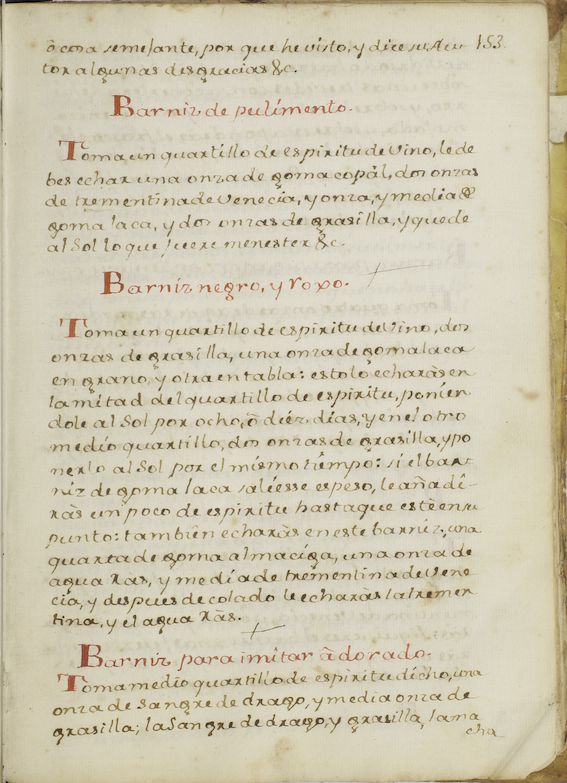 ò cosa semejante, por que he visto, y dice su Au- 153
tor algunas desgracias &c.
Barniz de pulimento.
Toma un quartillo de espiritu de Vino, le de
bes echar una onza de goma copàl, dos onzas
de trementina de Venecia, y onza, y media de
goma laca, y dos onzas de grasilla, y quede
al Sol lo que fuere menester &c.
Barniz negro, y roxo.
Toma un quartillo de espiritu de Vino, dos
onzas de grasilla, una onza de goma laca
en grano, y otra en tabla: esto lo echaràs en
la mitad del quartillo de espiritu, ponien
dole al Sol por ocho, ò diéz dias, y en el otro
medio quartillo, dos onzas de grasilla, y po
nerlo al Sol por el mismo tiempo: si el bar
niz de goma laca saliesse espeso, le añadi-
ràs un poco de espiritu hasta que estè en su
punto: tambien echaràs en este barniz, una
quarta de goma almaciga, una onza de
agua ràs, y media de trementina de Vene
cia, y despues de colado le echaràs la tremen
tina, y el agua ràs.
Barniz para imitar à dorado.
Toma medio quartillo de espiritu dicho, una
onza de sangre de drago, y media onza de
grasilla; la Sangre de drago, y grasilla, la ma
cha